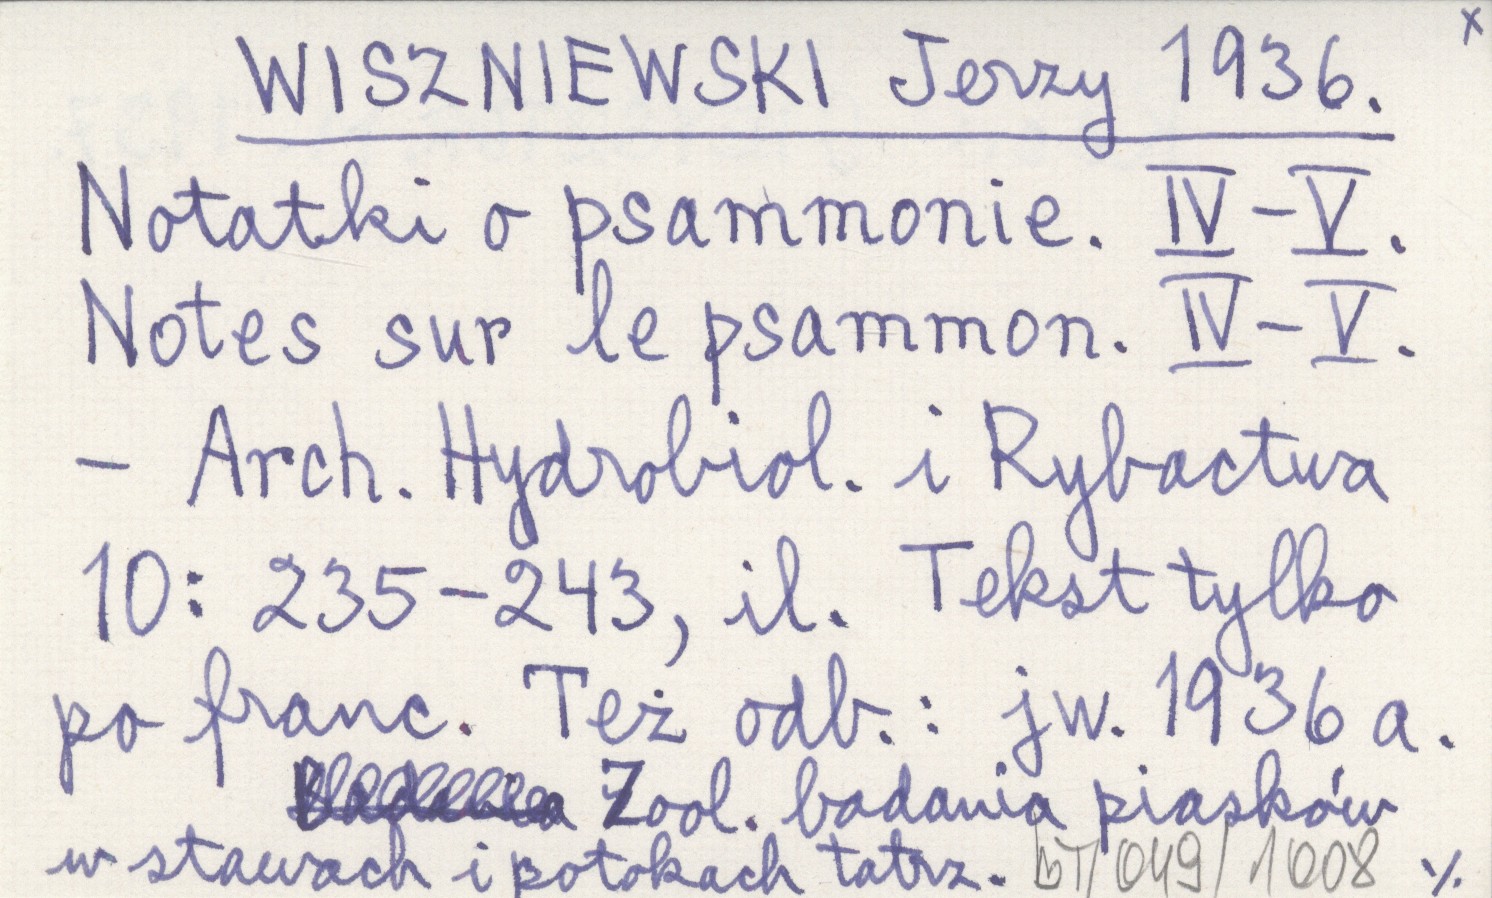 x
WISZNIEWSKI Jerzy 1936.
Notatki o psammonie. IV-V.
Notes sur le psammon. IV-V.
- Arch. Hydrobiol. i Rybactwa
10: 235-243, il. Tekst tylko
po franc. Też odb.: jw. 1936 a.
Zool. badania piasków
w stawach i potokach tatrz. DT/049/1008 ./.